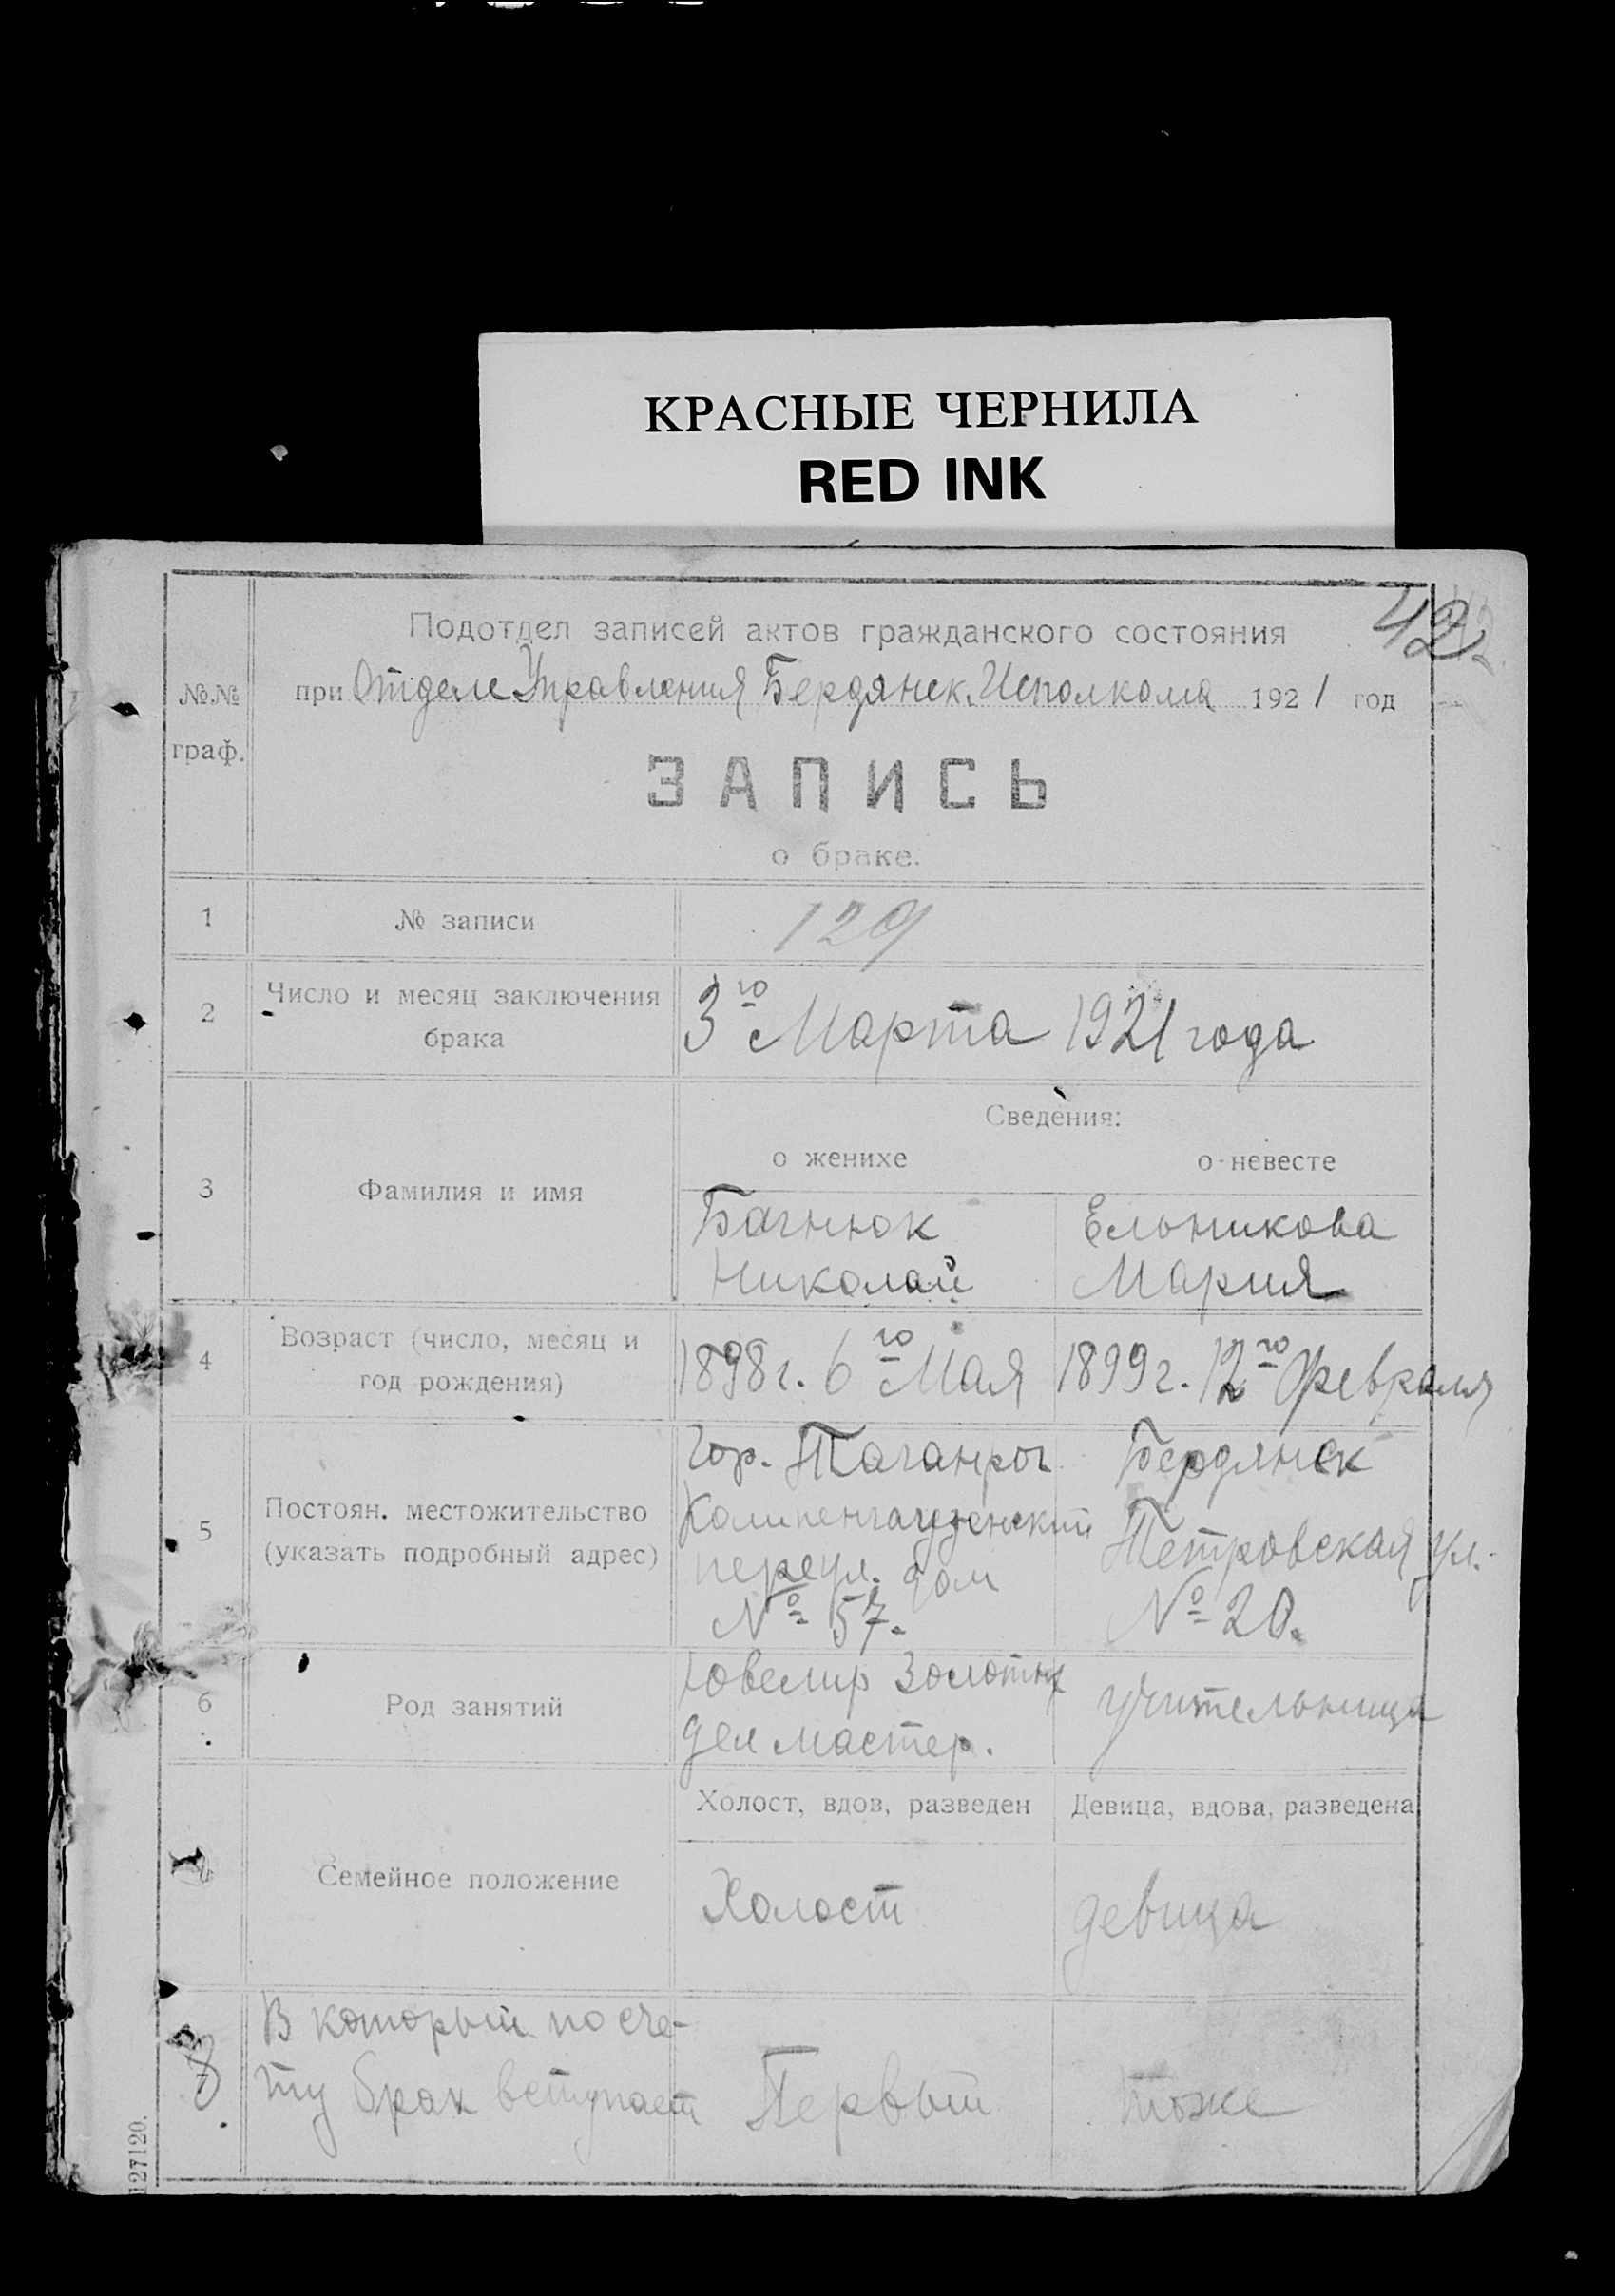 КРАСНЫЕ ЧЕРНИЛА
RED INK
42
Подотдел записей актов гражданского состояния
при Отделе Управления Бердянск. Исполкома 1921 год
№№
граф.
ЗАПИСЬ
о браке.
1 № записи 129
2 Число и месяц заключения
брака
3го Марта 1921 года
Сведения:
о женихе о невесте
3 Фамилия и имя
Багнюк Ельникова
Николай Мария
4 Возраст (число, месяц и
год рождения)
1898г. 6го Мая 1899г. 12го Февраля
5 Постоян. местожительство
(указать подробный адрес)
Гор. Таганрог Бердянск
Кампенгаузенский Петровская ул.
переул. дом
№ 57. № 20.
6 Род занятий
Ювелир Золотых учительница
дел мастер.
Холост, вдов, разведен Девица, вдова, разведена
Семейное положение
Холост девица
8 В который по сче-
ту брак вступает Первый тоже
127120.